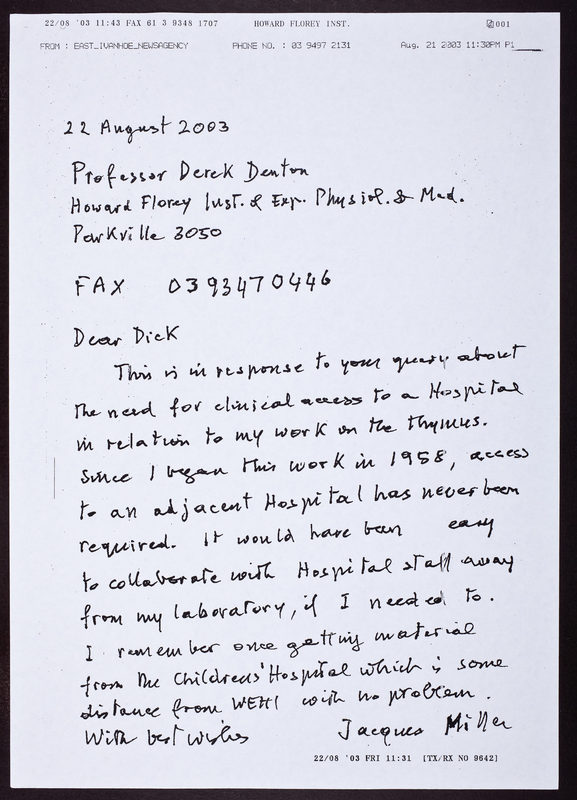 22/08 '03 11:43 FAX 61 3 9348 1707 HOWARD FLOREY INST. 001
FROM : EAST_IVANHOE_NEWSAGENCY PHONE NO. : 03 9497 2131 Aug. 21 2003 11:30PM P1
22 August 2003
Professor Derek Denton
Howard Florey Inst. & Exp. Physiol. & Med.
Parkville 3050
FAX 0393470446
Dear Dick
This is in response to your query about
the need for clinical access to a Hospital
in relation to my work on the thymus.
Since I began this work in 1958, access
to an adjacent Hospital has never been
required. It would have been easy
to collaborate with Hospital staff away
from my laboratory, if I needed to.
I remember once getting material
from the Childrens' Hospital which is some
distance from WEHI with no problem.
With best wishes Jacques Miller
22/08 '03 FRI 11:31 [TX/RX NO 9642]